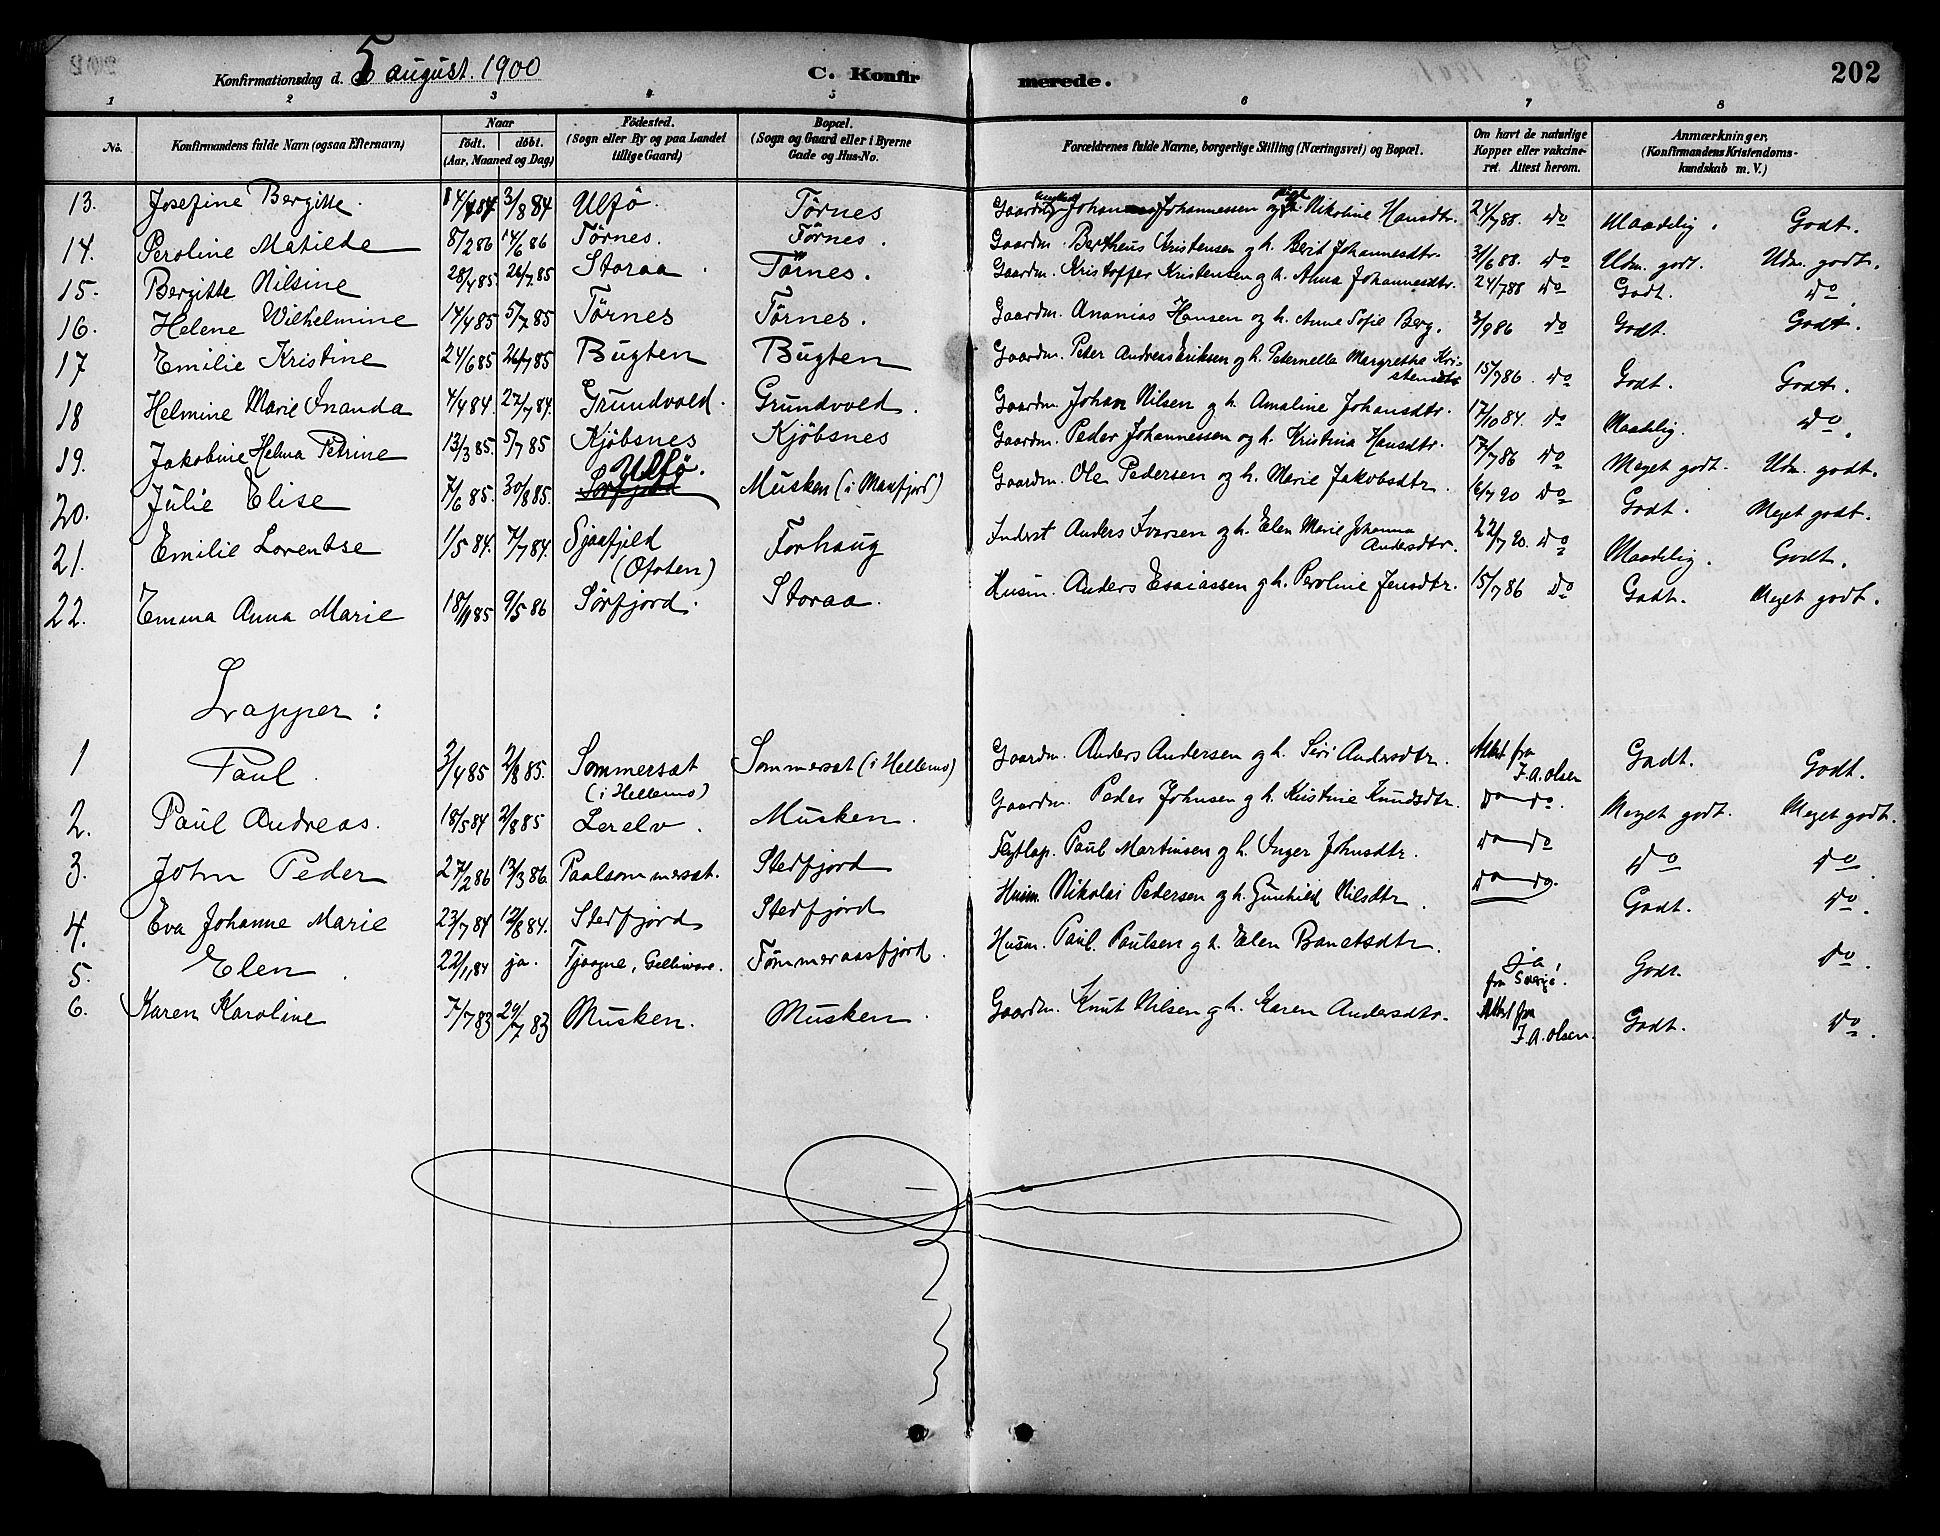 202
Konfirmationsdag d. 5 august. 1900 C. Konfirmerede.
1 2 3 4 5 6 7 8
No. Konfirmandens fulde Navn (ogsaa Efternavn) Naar født. døbt. (Aar, Maaned og Dag) Fødested. (Sogn eller By og paa Landet tillige Gaard) Bopæl. (Sogn og Gaard eller i Byerne Gade og Hus-No. Forældrenes fulde Navne, borgerlige Stilling (Næringsvei) og Bopæl. Om havt de naturlige Kopper eller vakcineret. Attest herom. Anmærkninger. (Konfirmandens Kristendomskundskab m. V.)
13. Josefine Bergitte. 3/8 84 Ulfö. Törnes Johan Johannessen og Nikoline Hansdtr. 24/7 88. Do Maadelig. Godt.
14. Peroline Matilde 8/2 86 14/6 86 Törnes. Törnes. Gaardm. Bertheus Kristensen og h. Berit Johannesdtr. 3/6 88. Do Udm. godt. Udm. godt.
15. Bergitte Nilsine 28/4 85 26/7 85 Storaa. Törnes. Gaardm. Kristoffer Kristensen og h. Anna Johannesdtr. 24/7 88 Do Godt. Do.
16. Helene Wilhelmine 14/4 85 5/7 85 Törnes Törnes. Gaardm. Ananias Hansen og h. Anne Sofie Berg. 3/9 86 Do Godt. Godt.
17 Emilie Kristine 24/6 85 26/7 85 Bugten Bugten Gaardm. Peter Andreas Eriksen og h. Peternella Margrethe Kristensdtr 15/7 86. Do Godt. Godt.
18 Helmine Marie Inanda 4/4 84. 27/7 84. Grundvold. Grundvold. Gaardm. Johan Nilsen og h. Amaline Johansdtr. 17/10 84. Do Maadelig. Do.
19. Jakobine Helma Petrine 13/3 85. 5/7 85 Kjöbsnes Kjöbsnes Gaardm. Peder Johannessen og h. Kristina Hansdtr. 17/7 86 Do Meget godt. Udm. godt.
20. Julie Elise 7/6 85. 30/8 85. Ulfö. Musken (i Manfjord) Gaardm. Ole Pedersen og h. Marie Jakobsdtr. 16/7 90 Do Godt. Meget godt.
21. Emilie Lorentse 1/5 84. 7/7 84. Sjaafjeld (Ofoten) Forhaug Inderst Anders Iversen og h. Elen Marie Johanna Andersdtr. 22/7 90. Do Maadelig. Godt.
22. Emma Anna Marie 18/11 85 9/5 86 Sörfjord. Storaa. Husm. Anders Esaiassen og h. Peroline Jensdtr. 15/7 86 Do Godt. Meget godt.
Lapper:
1 Paul. 3/4 85 2/8 85. Sommersæt (i Hellemo) Sommersæt (i Hellemo) Gaardm. Anders Andersen og h. Siri Andersdtr. Attest fra J. A. Olsen Godt. Godt.
2. Paul Andreas. 18/5 84 2/8 85 Lerelv. Musken. Gaardm. Peder Johnsen og h. Kristine Knudsdtr. Do Do. Meget godt. Meget godt.
3. John Peder 27/2 86 13/3 86. Paalsommersæt. Stedfjord Paul Martinsen og h. Inger Johnsdtr. Do Do Do Do.
4. Eva Johanne Marie 23/7 84 12/8 84. Stedfjord Stedfjord Husm. Nikolai Pedersen og h. Gunhild Nilsdtr. Do Do. Godt. Do.
5. Elen. 22/1 84 ja. Tjaagne, Gellivare. Tömmeraasfjord. Husm. Paul Paulsen og h. Elen Banetsdtr. ja fra Sverige! Godt. Do.
6. Karen Karoline 7/7 83 29/7 83 Musken. Musken. Gaardm. Knut Nilsen og h. Karen Andersdtr. Attest fra J. A. Olsen. Godt. Do.